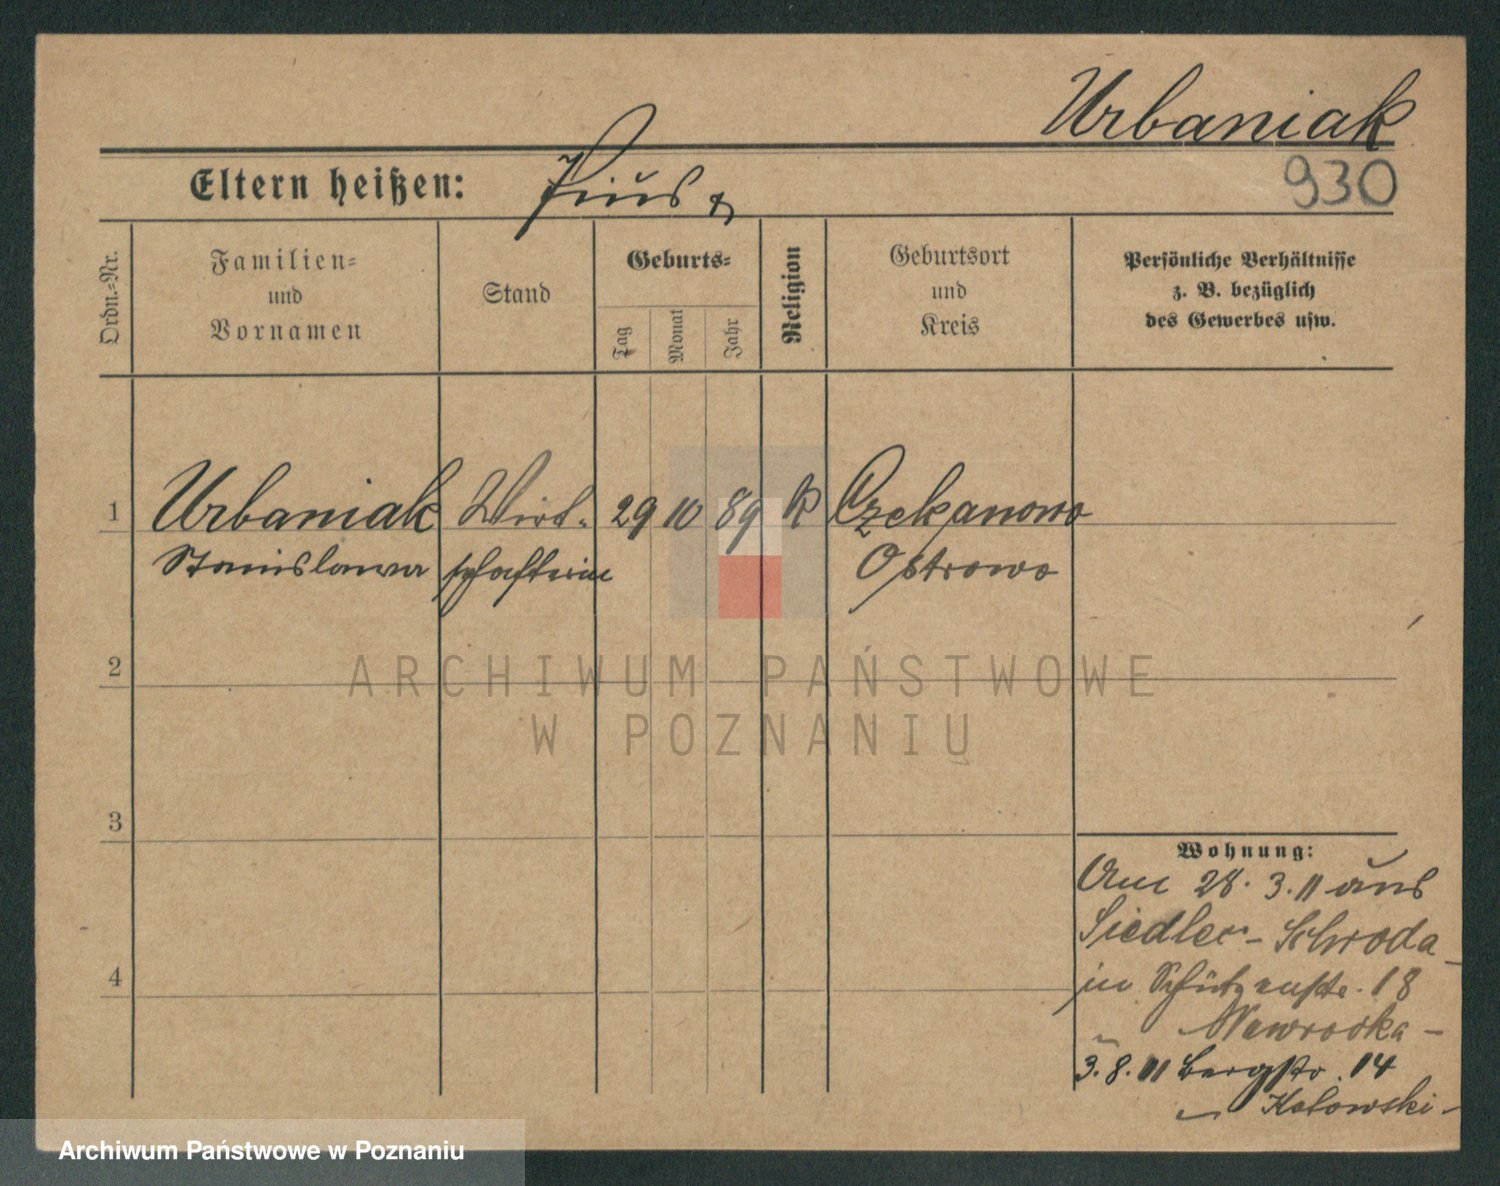 Urbaniak
930
Eltern heißen: Pius
Ordn.-Nr.
Familien- und Vornamen
Stand
Geburts-
Tag
Monat
Jahr
Religion
Geburtsort und Kreis
Persönliche Verhältnisse z. B. bezüglich des Gewerbes usw.
1 Urbaniak Wirt- 29 10 89 k Czekanowo
Stanislawa schafterin Ostrowo
2
3
4
ARCHIWUM PAŃSTWOWE
W POZNANIU
Wohnung:
Am 28. 3. 11 aus
Siedlec - Schroda
in Schützenstr. 18
Nawrocka -
3. 8. 11 Bergstr. 14
Kolowski -
Archiwum Państwowe w Poznaniu